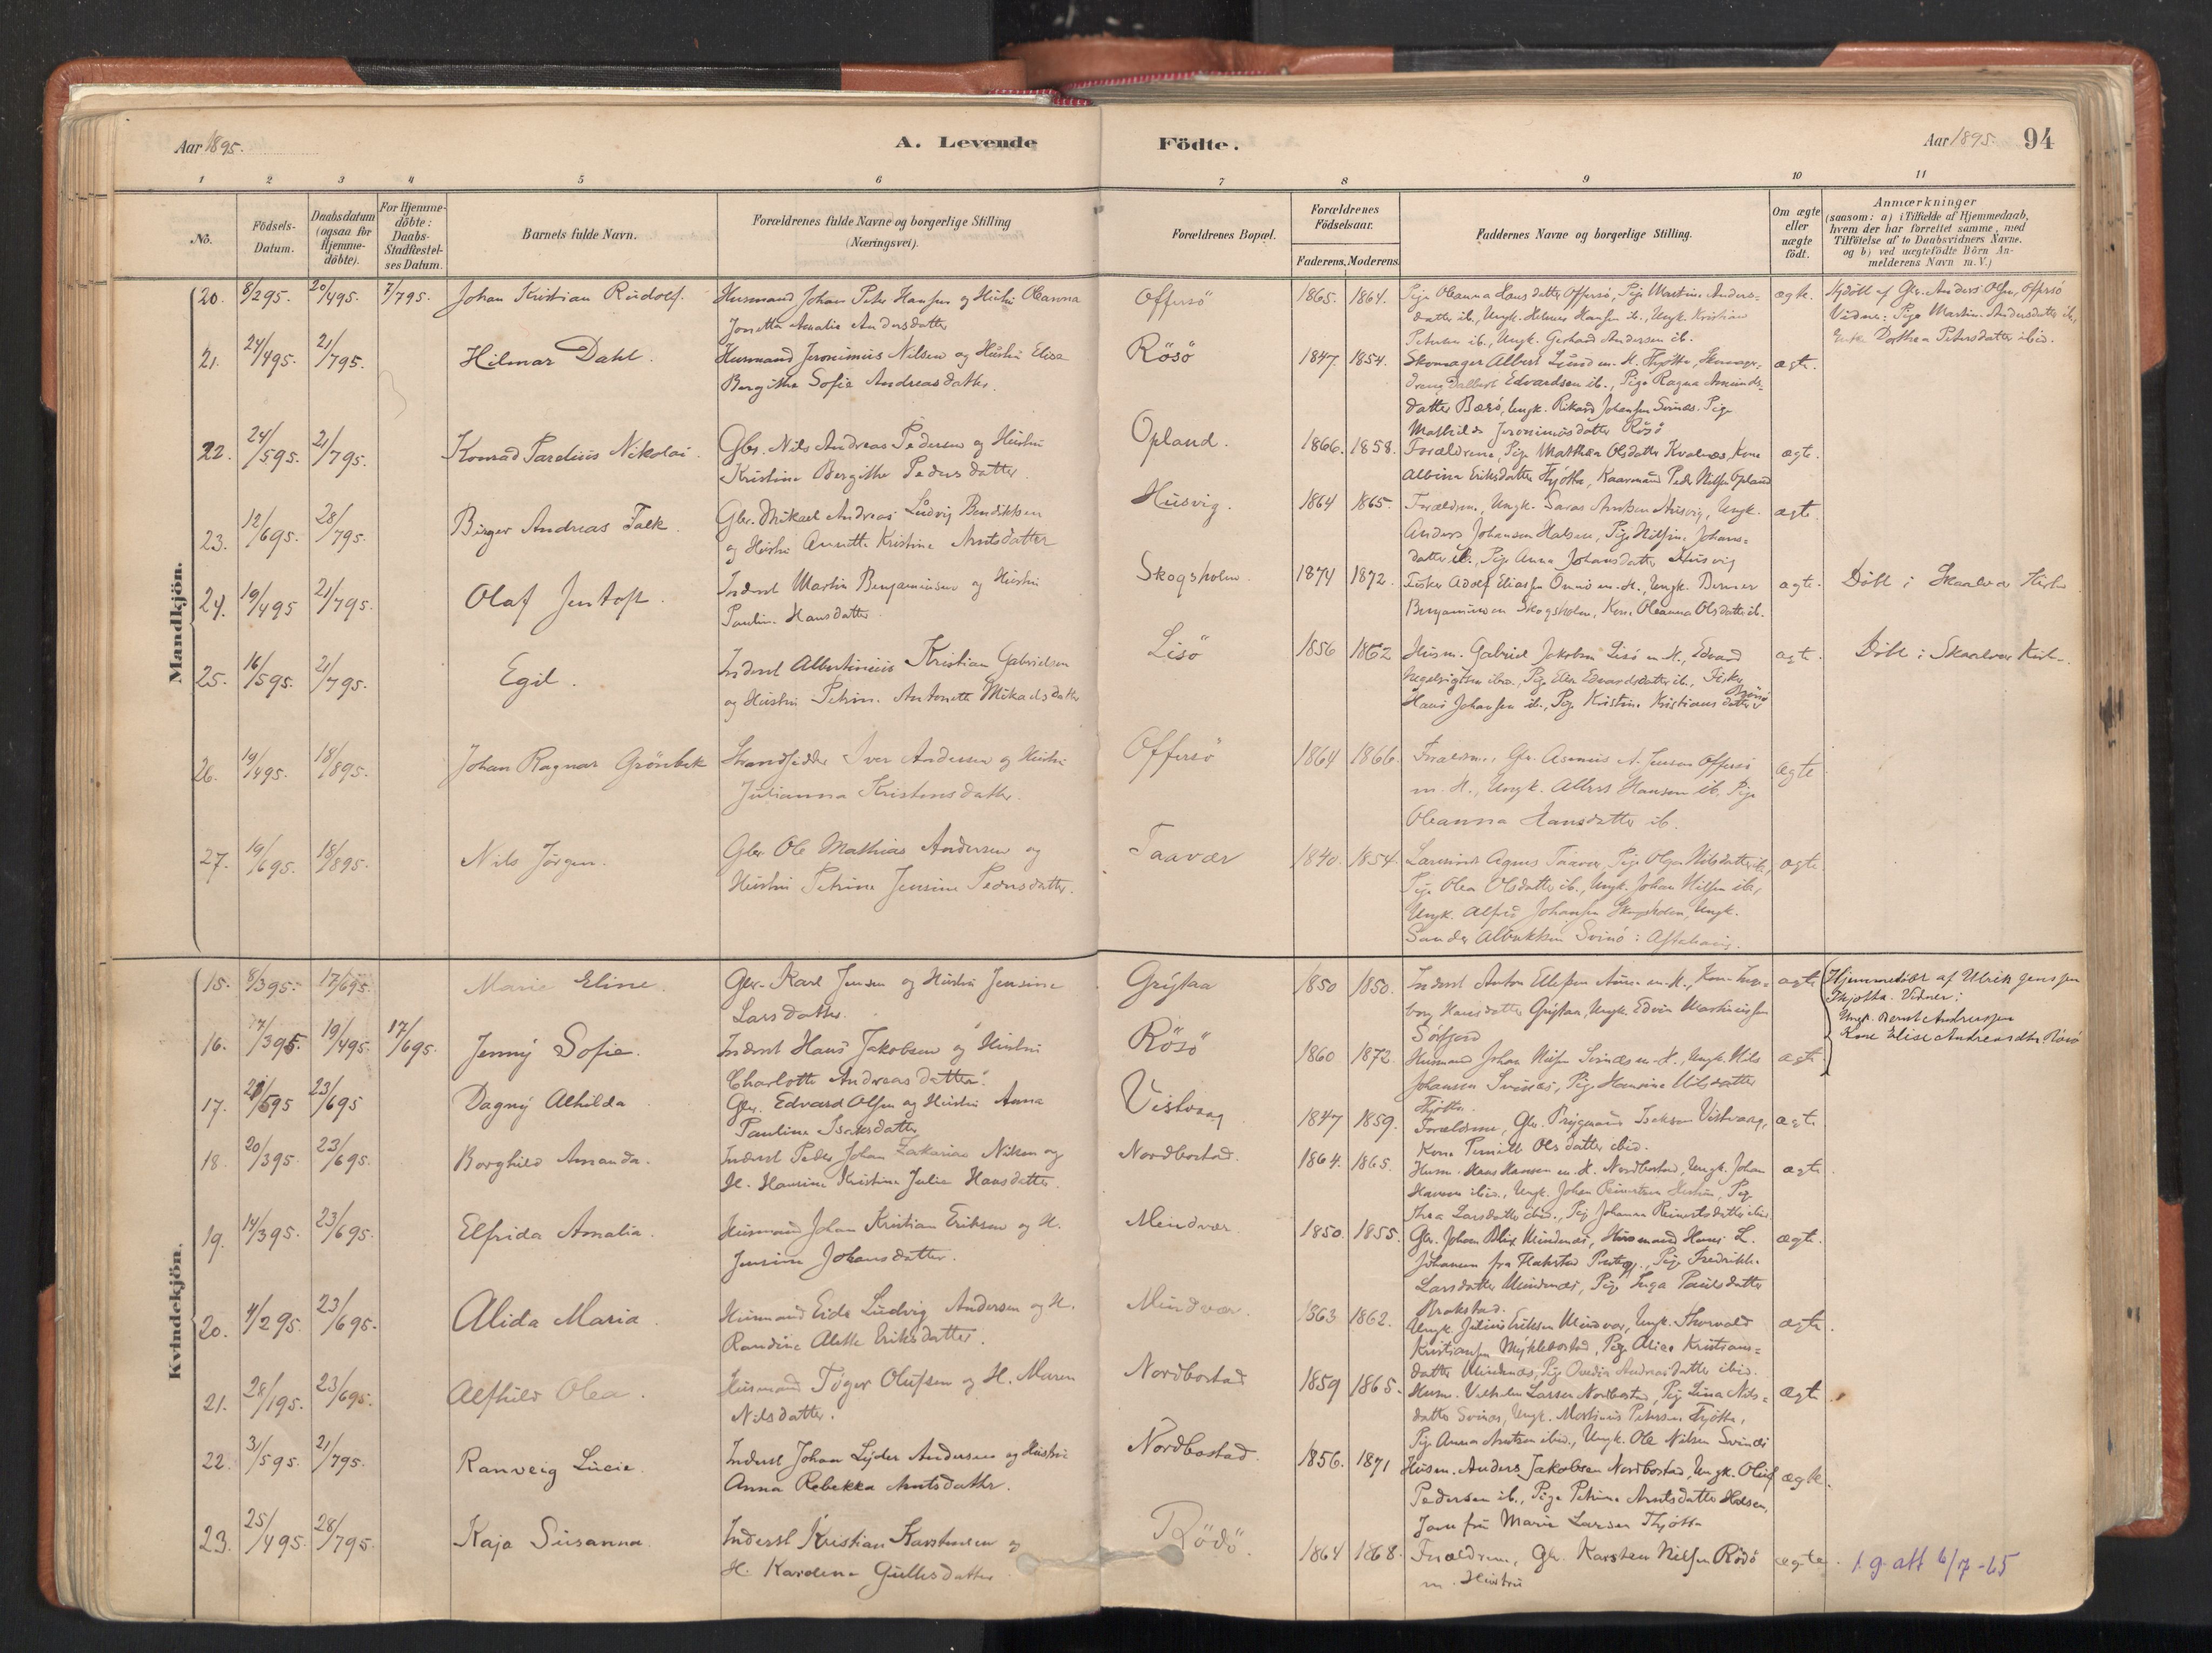 Aar 1895.
A. Levende
Födte.
Aar 1895.
94
1 2 3 4 5 6 7 8 9 10 11
No.
Födsels-
Datum.
Daabsdatum
(ogsaa for
Hjemme-
döbte).
For Hjemme-
döbte:
Daabs-
Stadfæstel-
ses Datum.
Barnets fulde Navn.
Forældrenes fulde Navne og borgerlige Stilling
(Næringsvei).
Forældrenes Bopæl.
Forældrenes
Födselsaar.
Faderens. Moderens.
Faddernes Navne og borgerlige Stilling.
Om ægte
eller
uægte
födt.
Anmærkninger
(saasom: a) i Tilfælde af Hjemmedaab,
hvem der har forrettet samme, med
Tilföielse af to Daabsvidners Navne.
og b) ved uægtefödte Börn An-
melderens Navn m.V.)
Mandkjön.
20. 8/2 95. 20/4 95. 7/7 95. Johan Kristian Rudolf.
Husmand Johan Peter Hansen og Hustru Oleanna
Jonetta Amalia Andersdatter
Offersö
1865. 1864.
Pige Oleanna Hansdatter Offersö, Pige Martine Anders-
datter ib., Ungk. Helmer Hansen ib., Ungk. Kristian
Petersen ib., Ungk. Gerhard Andersen ib.
ægte.
Hjdöbt af Gbr. Anders Olsen, Offersö
Vidner: Pige Martine Andersdatter ib.,
Enke Dorthea Petersdatter ibid.
21. 24/4 95. 21/7 95. Hilmar Dahl.
Husmand Jeronimus Nilsen og Hustru Elise
Bergithe Sofie Andreasdatter.
Rösö
1847. 1854.
Skomager Albert Lund m. H. Thjötta,
Dalbert Edvardsen ib., Pige Ragna Amunds-
datter Bærö, Ungk. Rikard Johansen Svinæs. Pige
Mathilde Jeronimusdatter Rösö
ægte.
22. 24/5 95. 21/7 95. Konrad Pardeliis Nikolai.
Gbr. Nils Andreas Pedersen og Hustru
Kristine Bergithe Pedersdatter
Opland.
1866. 1858.
Forældrene, Pige Mathea Olsdatter Kvalnæs, Kone
Albine Eriksdatter Thjötta, Kaarmand Peder Nilsen Opland
ægte.
23. 12/6 95. 28/7 95. Birger Andreas Falk.
Gbr. Mikael Andreas Ludvig Bendiktsen
og Hustru Annette Kristine Arntsdatter
Husvig.
1864 1865.
Forældrene, Ungk. Arntsen Husvig, Ungk.
Anders Johansen Halsen, Pige Nilsine Johans-
datter ib., Pige Anna Johansdatter Husvig
ægte.
24. 19/4 95 21/7 95. Olaf Jentoft.
Inderst Martin Benjaminsen og Hustru
Pauline Hansdatter.
Skogsholm.
1874 1872.
Fisker Adolf Eliassen Önnö m. H., Ungk. Berner
Benjaminsen Skogsholm, Kone Oleanna Olsdatter ib.
ægte.
Döbt i Skaalvær Kirke
25. 16/5 95. 21/7 95. Egil.
Inderst Albertinius Kristian Gabrielsen
og Hustru Petrine Antonette Mikaelsdatter
Lisö
1856 1862
Husm. Gabriel Jakobsen Lisö m. H., Edvard
ibid., Pige Elen Edvardsdatter ib., Fisker
Hans Johansen ib., Pige Kristine Kristiansdatter
ægte.
Döbt i Skaalvær Kirke.
26. 19/4 95. 18/8 95. Johan Ragnar Grönbek
Strandsidder Iver Andersen og Hustru
Julianna Kristensdatter.
Offersö
1864 1866.
Forældrene, Gbr. Asmus A. Jensen Offersö
m. H., Ungk. Albert Hansen ib. Pige
Oleanna Hansdatter ib.
ægte
27. 19/6 95. 18/8 95. Nils Jörgen.
Gbr. Ole Mathias Andersen og
Hustru Petrine Jensine Pedersdatter.
Taavær
1840. 1854.
Agnes Taavær, Pige Olga Nilsdatter ib.,
Pige Olea Olsdatter ib., Ungk. Johan Nilsen ib.,
Ungk. Alfred Johansen Skogsholm, Ungk.
Sander Albriktsen Svinö i Alstahaug.
ægte.
Kvindekjön.
15. 8/3 95. 17/6 95. Marie Eline.
Gbr. Karl Jensen og Hustru Jensine
Larsdatter.
Grÿtaa
1850 1850.
Inderst Anton Ellefsen m. H., Kone Inge-
borg Hansdatter Grÿtaa, Ungk. Edvin Martinussen
Sörfjord
ægte
Hjemmedöbt af Ulrik Jenssen
Thjotta. Vidner:
Ungk. Bernt Andreassen
Kone Elise Andreasdtr. Rösö
16. 17/3 95. 19/4 95. 17/6 95. Jenny Sofie.
Inderst Hans Jakobsen og Hustru
Charlotte Andreasdatter.
Rösö
1860 1872.
Husmand Johan Nilsen Svinæs m. H., Ungk. Nils
Johansen Svinæs, Pige Hansine Nilsdatter
Thjötta.
ægte.
17. 21/5 95 23/6 95 Dagny Alhilda
Gbr. Edvard Olsen og Hustru Anna
Pauline Isaksdatter
Vistvaag
1847 1859.
Forældrene, Gbr. Isaksen Vistvaag,
Kone Pernille Olsdatter ibid.
ægte
18. 20/3 95. 23/6 95. Borghild Amanda.
Inderst Peder Johan Zakarias Nilsen og
H. Hansine Kristine Julie Hansdatter.
Nordbostad.
1864. 1865.
Husm. Hans Hansen m. H. Nordbostad, Ungk. Johan
Hansen ibid., Ungk. Johan Reinertsen Hestun, Pige
Thea Larsdatter ibid., Pige Johanna Reinertsdatter ibid.
ægte.
19. 14/3 95. 23/6 95. Elfrida Amalia.
Husmand Johan Kristian Eriksen og H.
Jensine Johansdatter.
Mindvær
1850. 1855.
Gbr. Johan Blix Mindnæs, Husmand Hans L.
Johansen fra Hakstad Prstegj., Pige Fredrikke
Larsdatter Mindnæs, Pige Inga Paulsdatter
Brakstad.
ægte.
20. 4/2 95. 23/6 95. Alida Maria.
Husmand Eide Ludvig Andersen og H.
Randine Alette Eriksdatter.
Mindvær.
1863 1862.
Ungk. Julius Eriksen Mindvær, Ungk. Thorvald
Kristiansen Mÿklebostad, Pige Alise Kristians-
datter Mindnæs, Pige Ovedia Andreasdatter ibid.
ægte.
21. 28/1 95. 23/6 95. Alfhild Olea.
Husmand Töger Olufsen og H. Maren
Nilsdatter.
Nordbostad
1859 1865.
Husm. Vilhelm Larsen Nordbostad, Pige Lina Nils-
datter Svinæs, Ungk. Martinus Petersen Thjötta,
Pige Anna Arntsen ibid., Ungk. Ole Nilsen Svinæs
ægte.
22. 31/5 95. 21/7 95. Ranveig Lucie.
Inderst Johan Lÿder Andersen og Hustru
Anna Rebekka Arntsdatter.
Nordbostad.
1856. 1871
Husm. Anders Jakobsen Nordbostad, Ungk. Oluf
Pedersen ib., Pige Petrine Arntsdatter Halsen,
Jomfru Marie Larsen Thjötta
ægte.
23. 25/4 95. 28/7 95. Kaja Susanna.
Inderst Kristian Karstensen og
H. Kardine Gullesdatter
Rödö.
1864 1868.
Forældrene, Gbr. Karsten Nilsen Rödö
m. Hustru
ægte.
1. g. att 6/7 -65